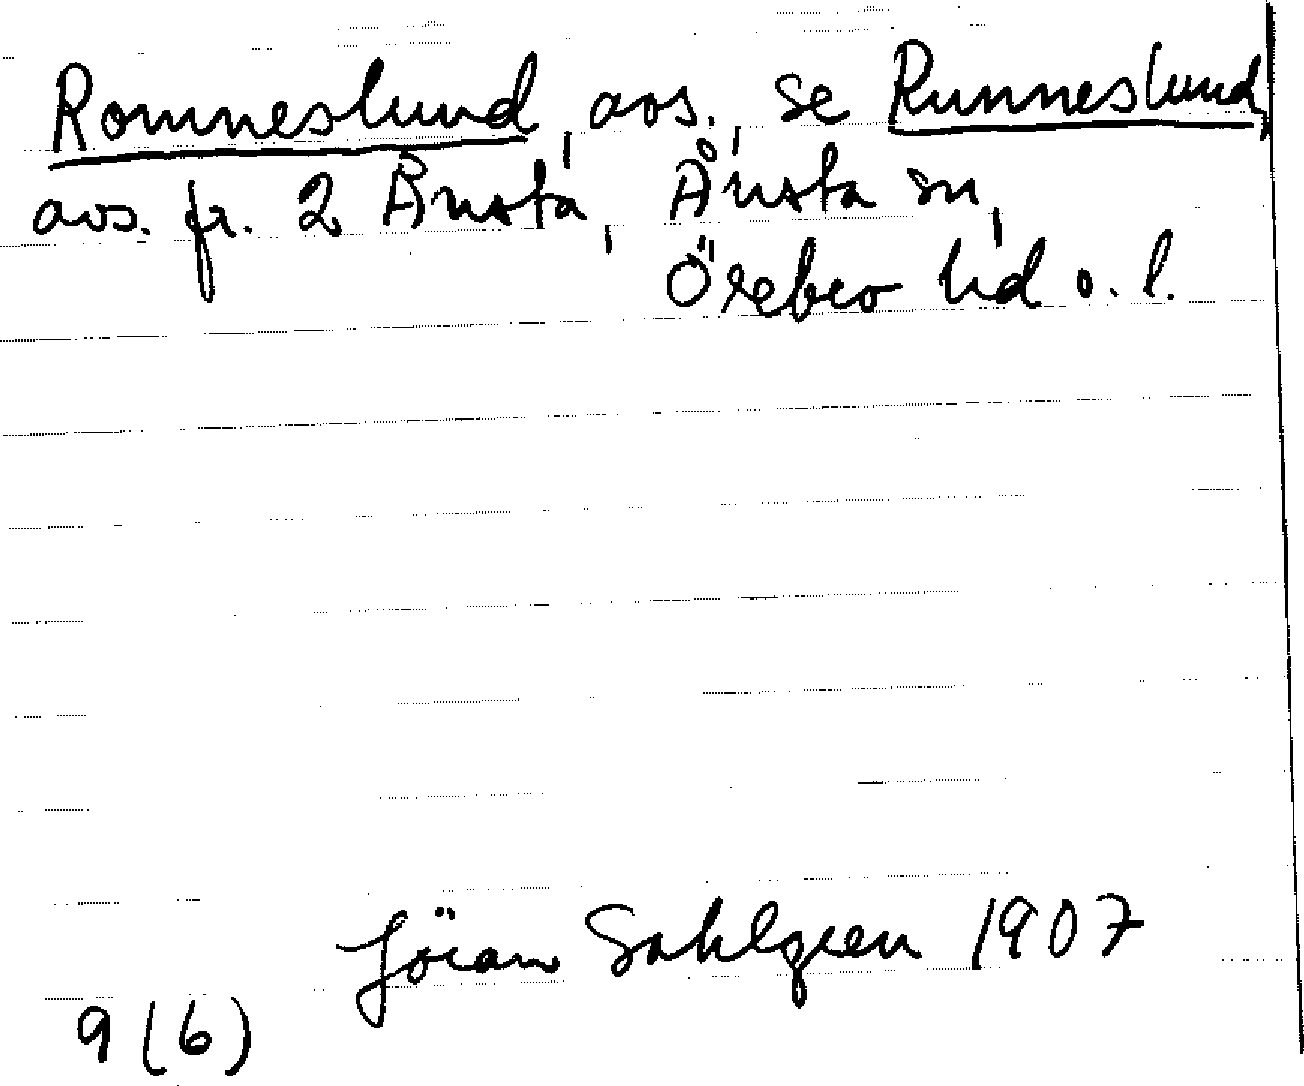 Romneslund, avs., se Runneslund,
avs. fr. 2 Ånsta, Ånsta sn,
Örebro hd o. l.
Jöran Sahlgren 1907
9 (6)